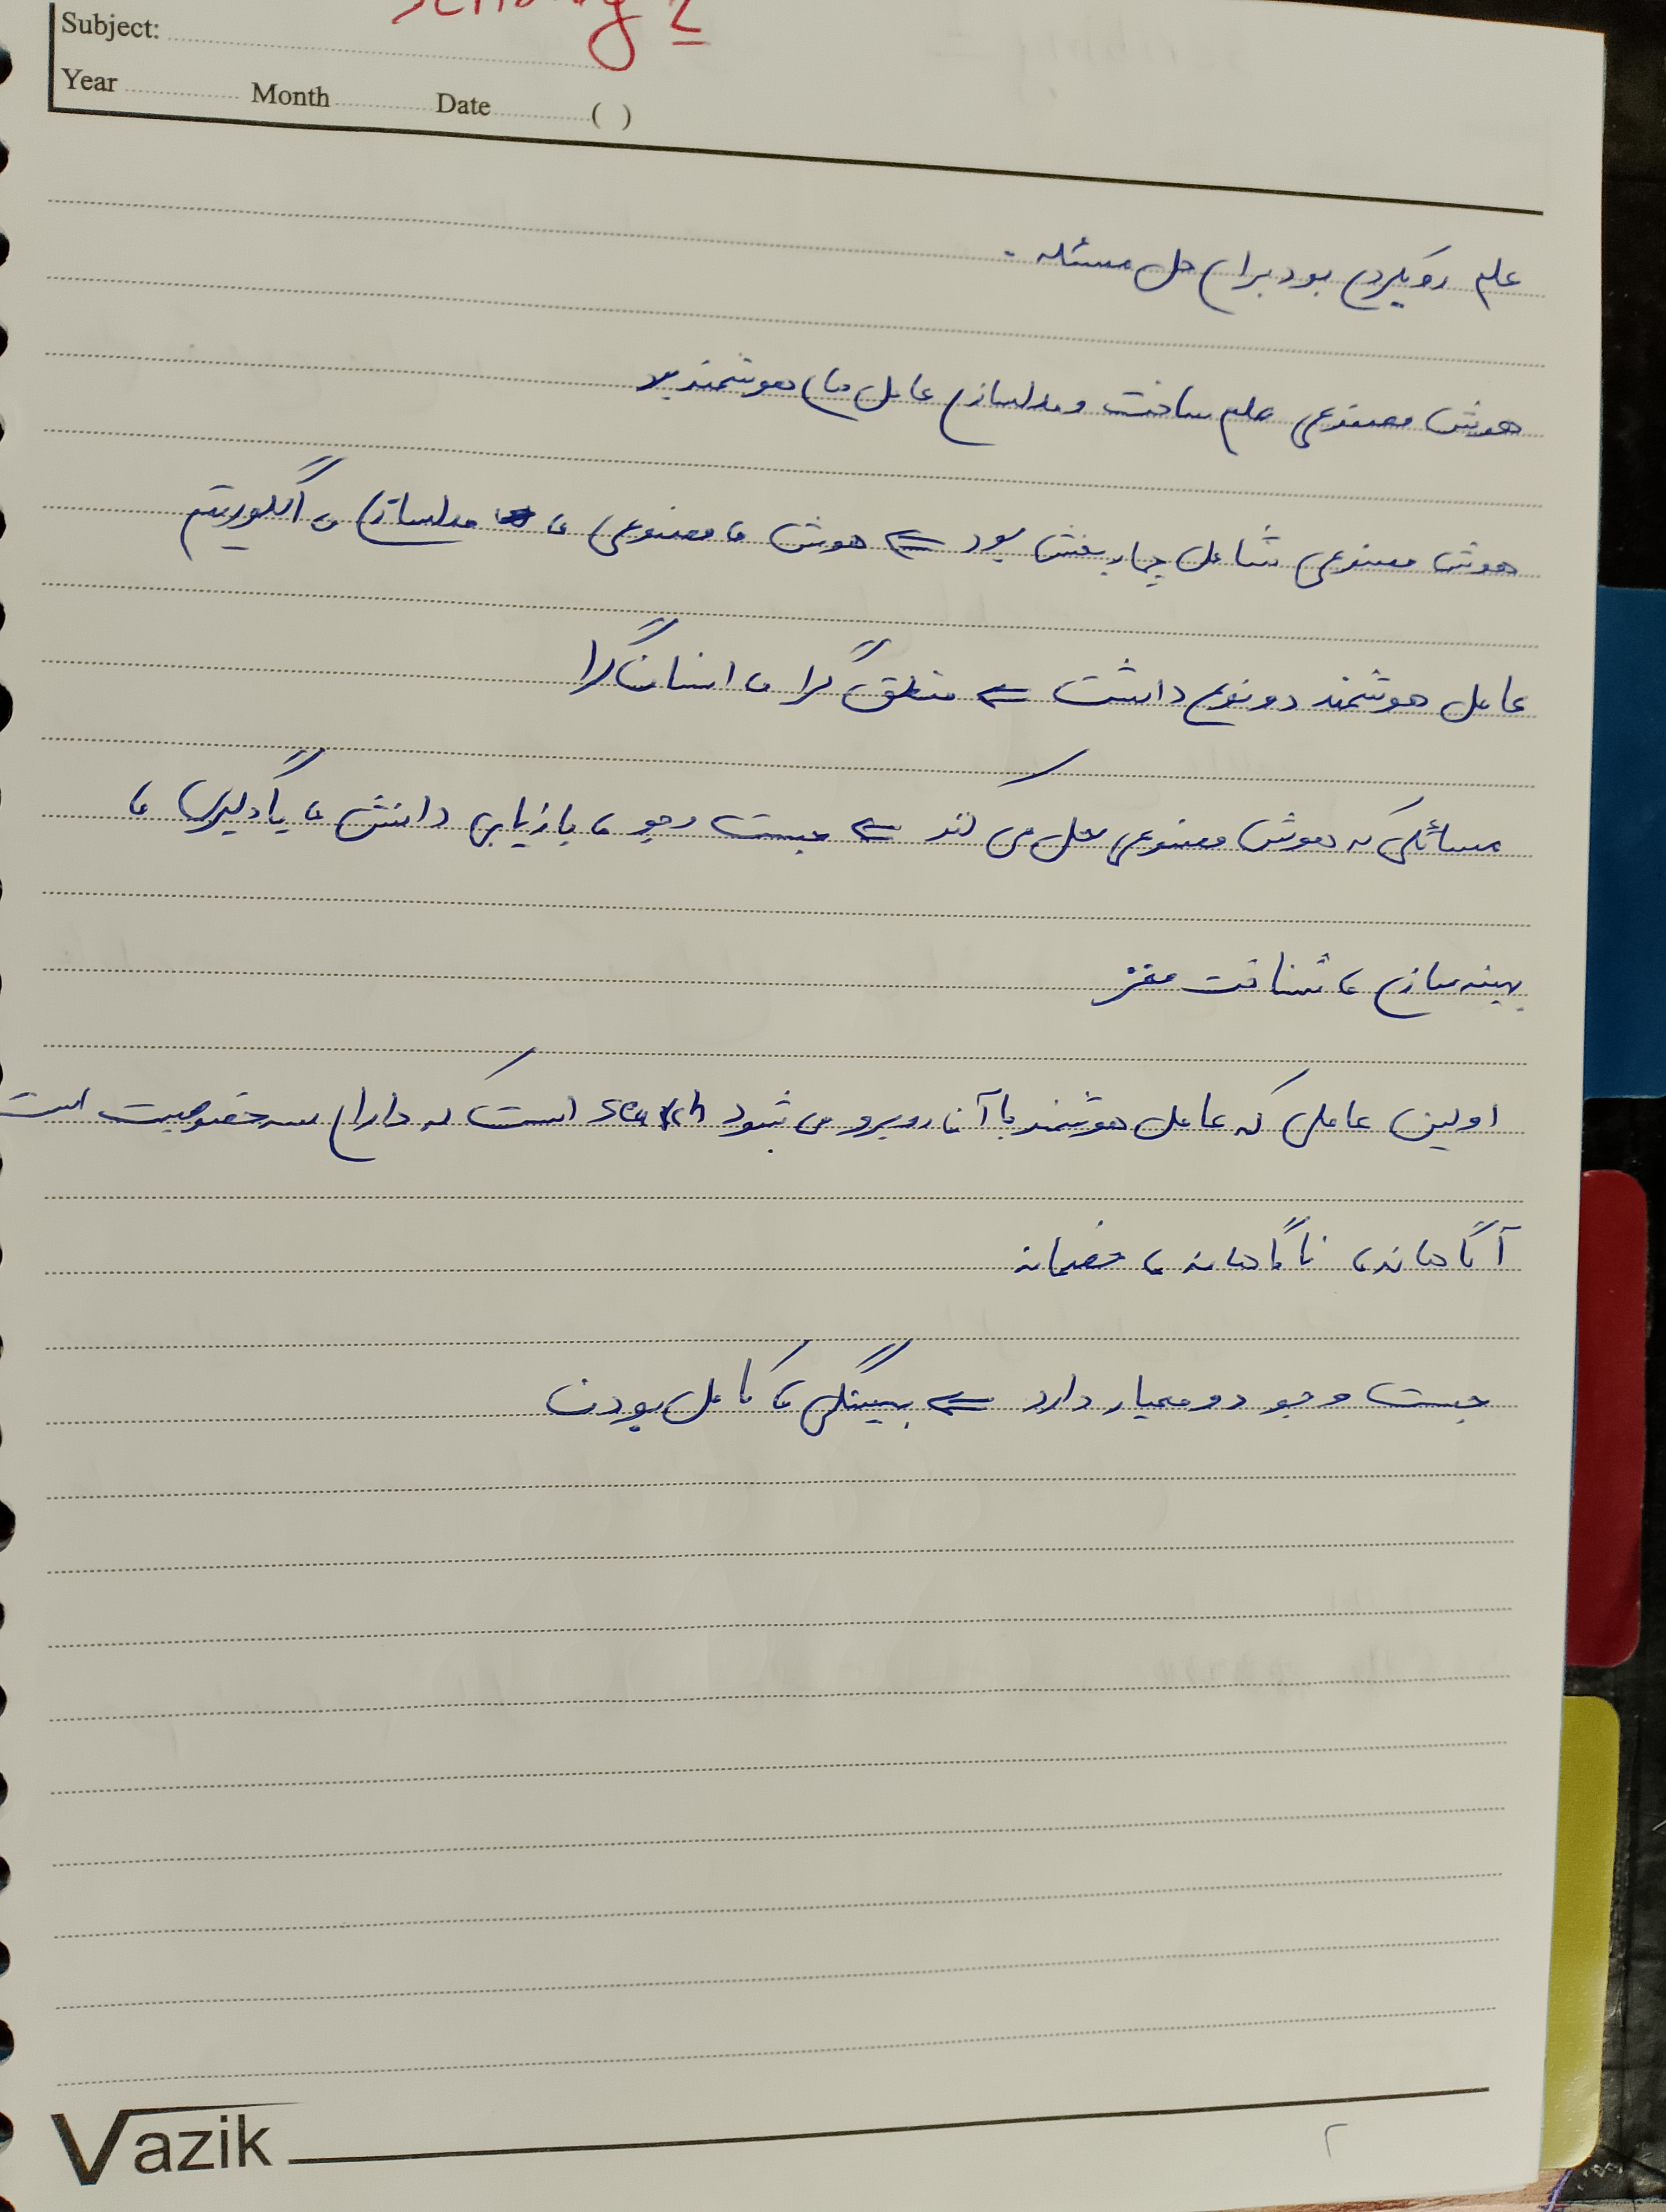 Subject:
Year Month Date ( )
علم رویکردی بود برای حل مسئله .
هوش مصنوعی علم ساخت و مدلسازی عامل های هوشمند بود
هوش مصنوعی شامل چهار بخش بود ⇐ هوش ، مصنوعی ، مدلسازی ، الگوریتم
عامل هوشمند دو نوع داشت ⇐ منطق گرا ، انسان گرا
مسائلی که هوش مصنوعی حل می کند ⇐ جست و جو ، بازیابی دانش ، یادگیری ،
بهینه سازی ، شناخت مغز
اولین عاملی که عامل هوشمند با آن روبرو می شود search است که دارای سه خصوصیت است
آگاهانه ، ناگاهانه ، خصمانه
جست و جو دو معیار دارد ⇐ بهینگی ، کامل بودن
Vazik
۲